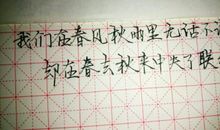 我们在春风秋雨里无话不
却在春去秋来中失了联